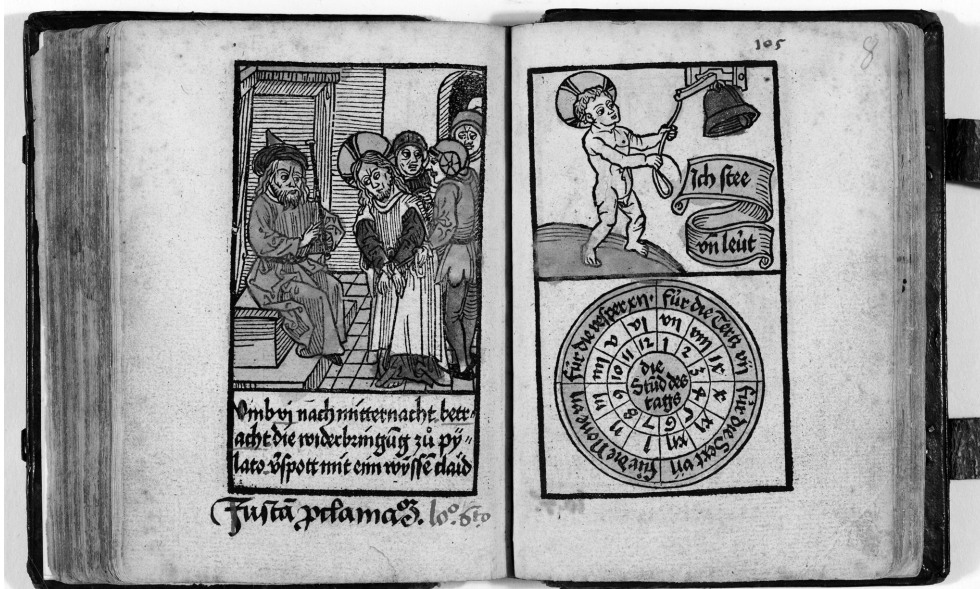 Vmb vj nach mitternacht betr⸗
acht die widerbringūg zů py⸗
lato v̄spott mit eim wyssē claid
Justā
105
8
Ich stee
vn̄ leut
für die Tertz vij
für die Sext vij
für die None vij
für die vesper xij
vij viij ix x xi xij j ij iij iiij v vj
1 2 3 4 5 6 7 8 9 10 11 12
die
Stūd des
tags